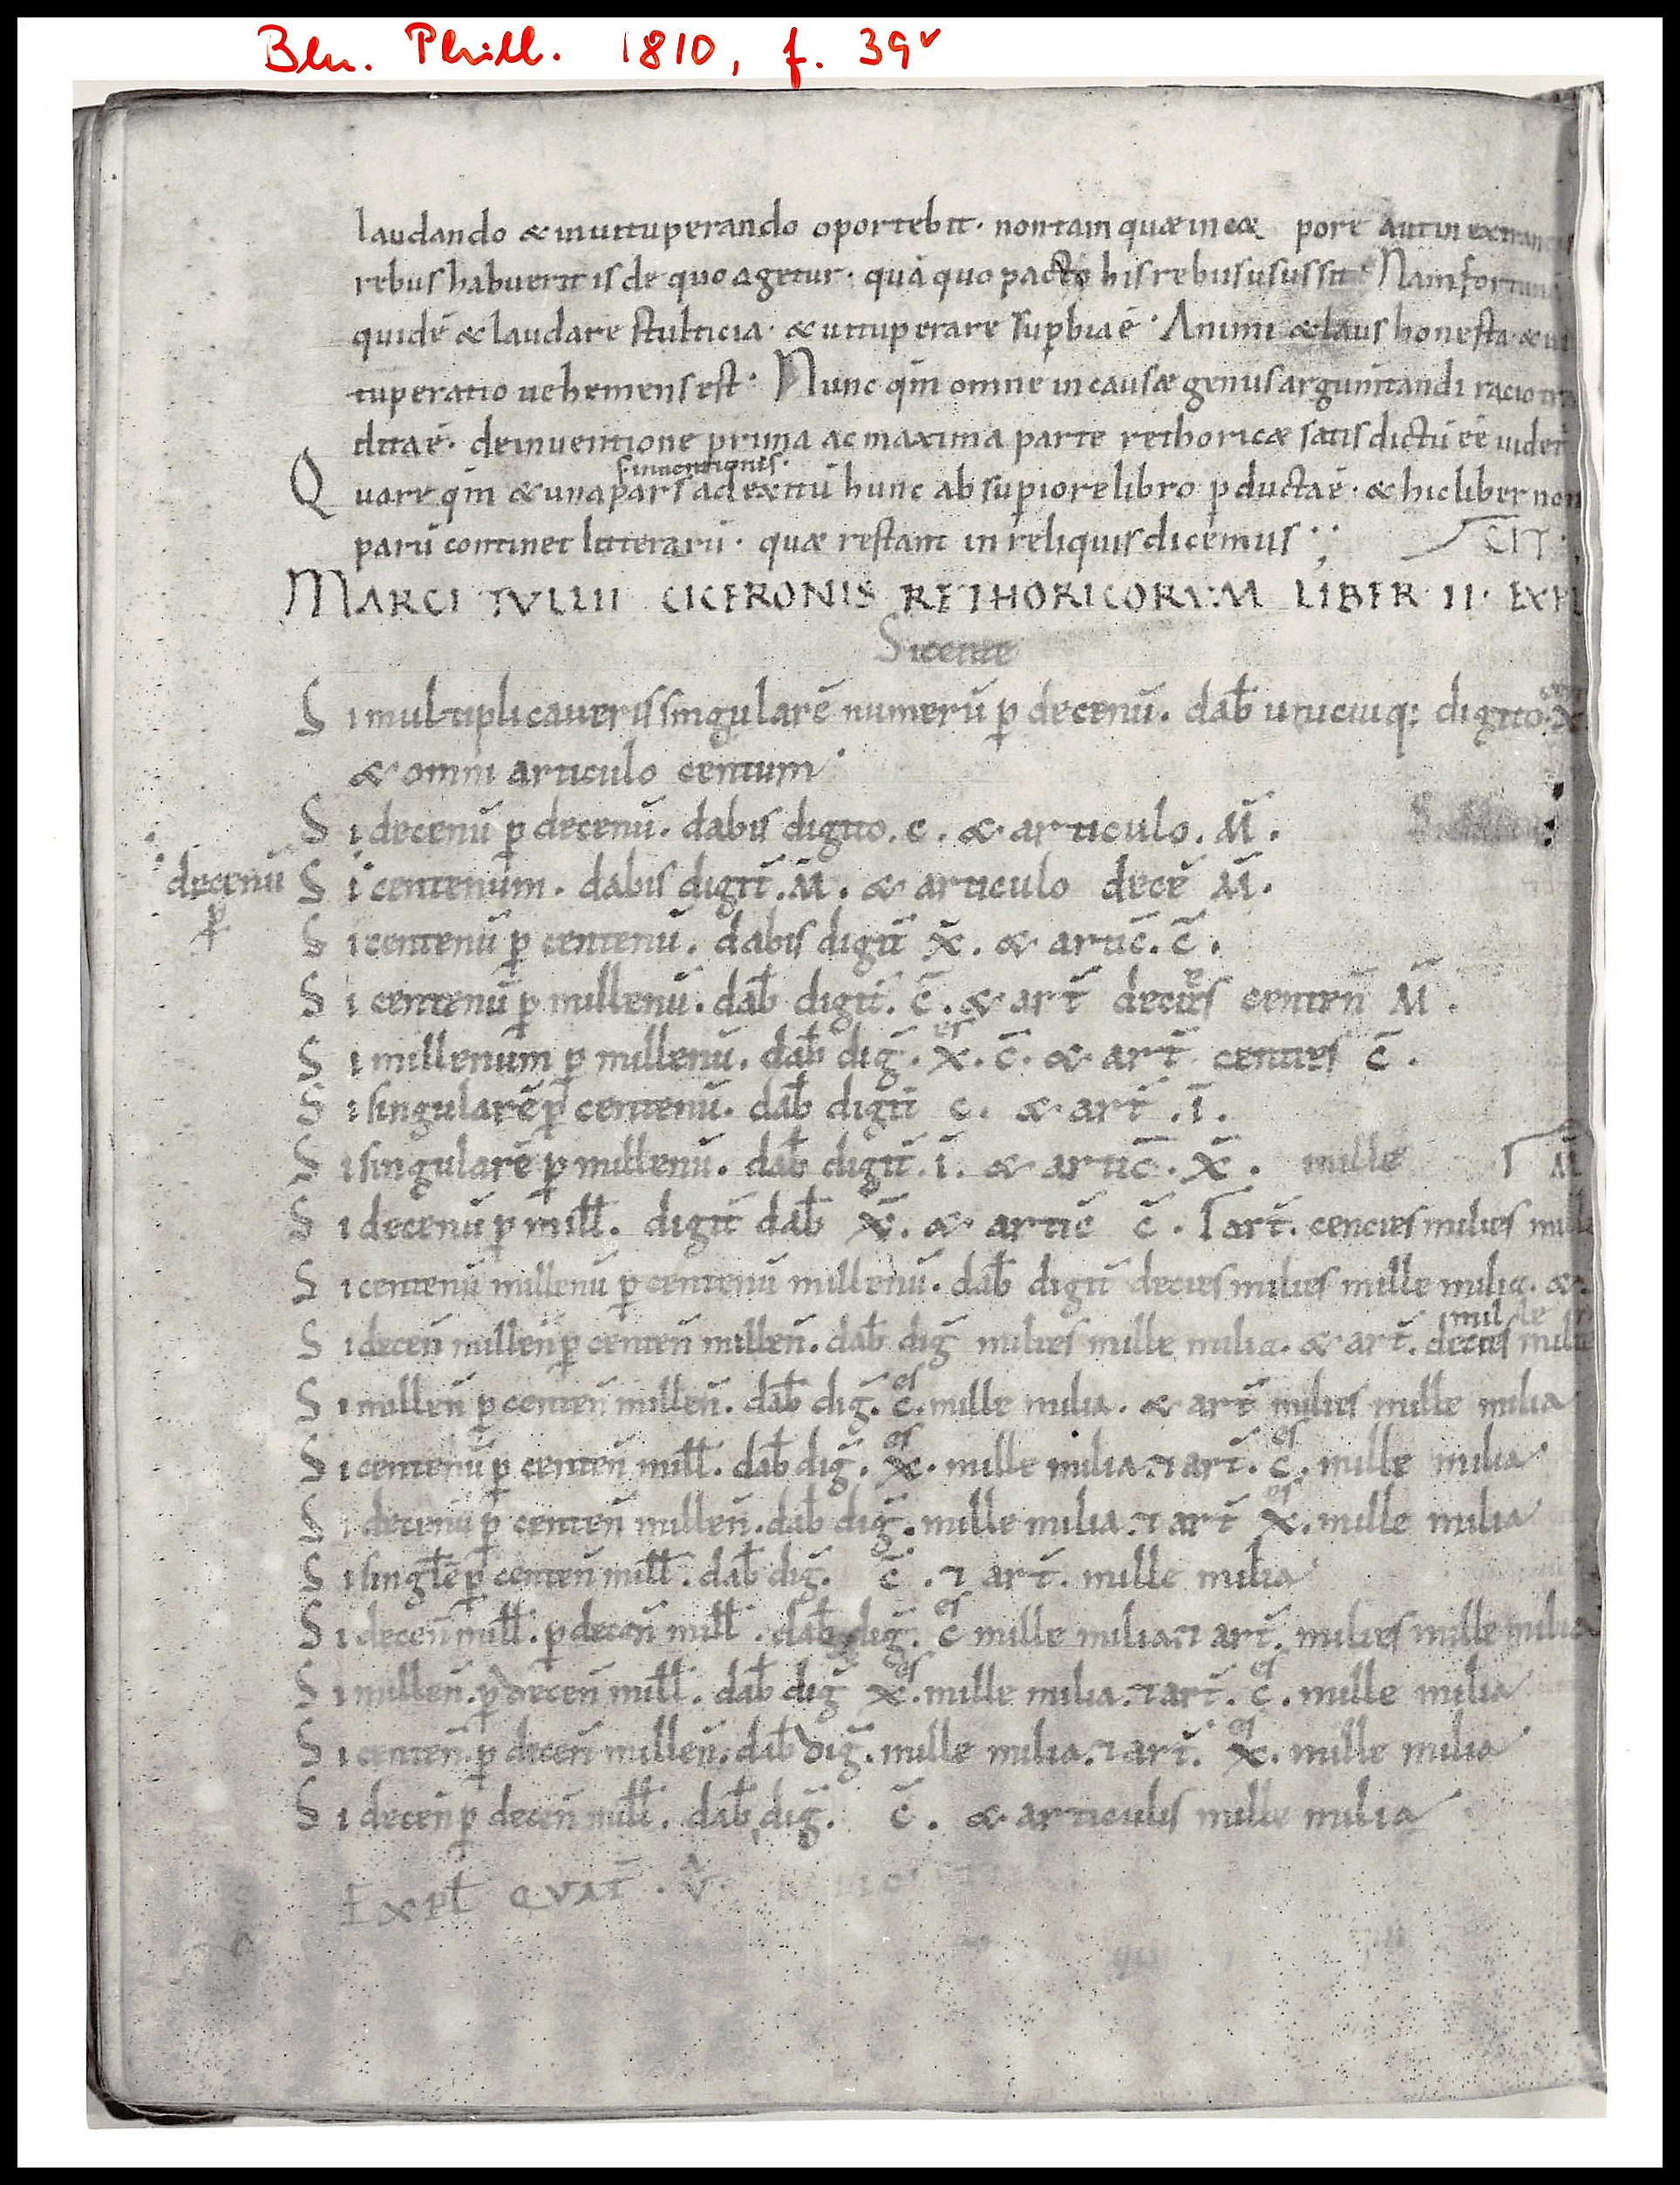 Bln. Phill. 1810, f. 39v
laudando & inuituperando oportebit· non tam quæ in cor pore aut in extraneis
rebus habuerit is de quo agetur· quā quo pacto his rebus usus sit· Nam fortunā
quidē & laudare stulticia· & uituperare supbia ē· Animi & laus honesta· & ui
tuperatio uehemens est· Nunc qm̄ omne in causæ genus argumtandi racio tra
dita ē· de inuentione prima ac maxima parte rethoricæ satis dictū eē uidet̄
s· inuentionis·
Quare qm̄ & una pars ad exitū hunc ab supiore libro pducta ē· & hic liber non
parū continet litterarū· quæ restant in reliquis dicemus
CIT·
MARCI TVLLII CICERONIS RETHORICORVM LIBER II· EXPLI
Si multiplicaueris singularē numerū p̱ decenū. dab̄ unicuiq; digito. x
& omni articulo centum
Si decenū p̱ decenū. dabis digito. c. & articulo. M̄.
decenū p̱
Si centenum. dabis digit̄. M̄. & articulo decē M̄.
Si centenū p̱ centenū. dabis digit̄ x̄. & artic̄. c̄.
Si centenū p̱ millenū. dab̄ digit̄. c̄. & art̄ decies centen̄ M̄.
Si millenum p̱ millenū. dab̄ diḡ. x̄es. c̄. & art̄ centies c̄.
Si singularē p̱ centenū. dab̄ digit̄ c. & art̄. ī.
Si singularē p̱ millenū. dab̄ digit̄. ī. & artic̄. x̄. mille M̄
Si decenū p̱ mill̄. digit̄ dab̄ x̄. & artic̄ c̄. art̄. cencies milies mille
Si centenū millenū p̱ centenū millenū. dab̄ digit̄ decies milies mille milia. &
mille
Si decen̄ millen̄ p̱ centen̄ millen̄. dab̄ diḡ milies mille milia. & art̄. decies milies
Si millen̄ p̱ centen̄ millen̄. dab̄ diḡ. c̄es. mille milia. & art̄ milies mille milia
Si centenū p̱ centen̄ mill̄. dab̄ diḡ. x̄es. mille milia. ⁊ art̄. c̄es. mille milia
Si decenū p̱ centen̄ millen̄. dab̄ diḡ. mille milia. ⁊ art̄ x̄es. mille milia
Si singlēp̱ centen̄ mill̄. dab̄ diḡ. c̄. ⁊ art̄. mille milia
Si decen̄ mill̄. p̱ decen̄ mill̄. dab̄ diḡ. c̄es mille milia ⁊ art̄. milies mille milia
Si millen̄. p̱ decen̄ mill̄. dab̄ diḡ x̄es. mille milia. ⁊ art̄. c̄es. mille milia
Si centen̄. p̱ decen̄ millen̄. dab̄ diḡ. mille milia. ⁊ art̄. x̄es. mille milia
Si decen̄ p̱ decen̄ mill̄. dab̄ diḡ. c̄. & articulis mille milia
Expł QVAT̄. V̂.